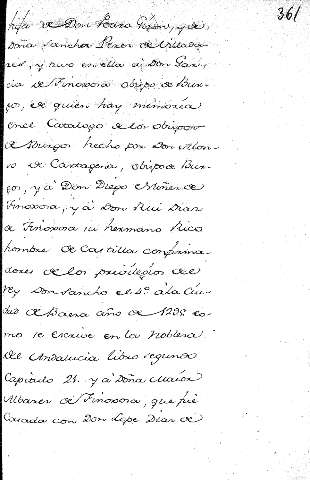 361
hija de Don Pedro Lopez, y de
Doña Sancha Perez de Villalo
res, y tuvo en ella a Don Gar
cia de Finoxosa obispo de Bur
gos, de quien hay memoria
en el Catalogo de los obispos
de Burgos hecho por Don Alon
so de Cartagena, obispo de Bur
gos, y à Don Diego Muñez de
Finoxosa, y à Don Rui Diaz
de Finoxosa su hermano Rico
hombre de Castilla confirma
dores de los privilegios del
rey Don Sancho el 4º à la Ciu
dad de Baeza año de 1295 co
mo se escrive en la Nobleza
del Andalucia libro segundo
Capitulo 21. y a Doña Maior
Albarez de Finoxosa, que fué
Casada con Don Lope Diaz de